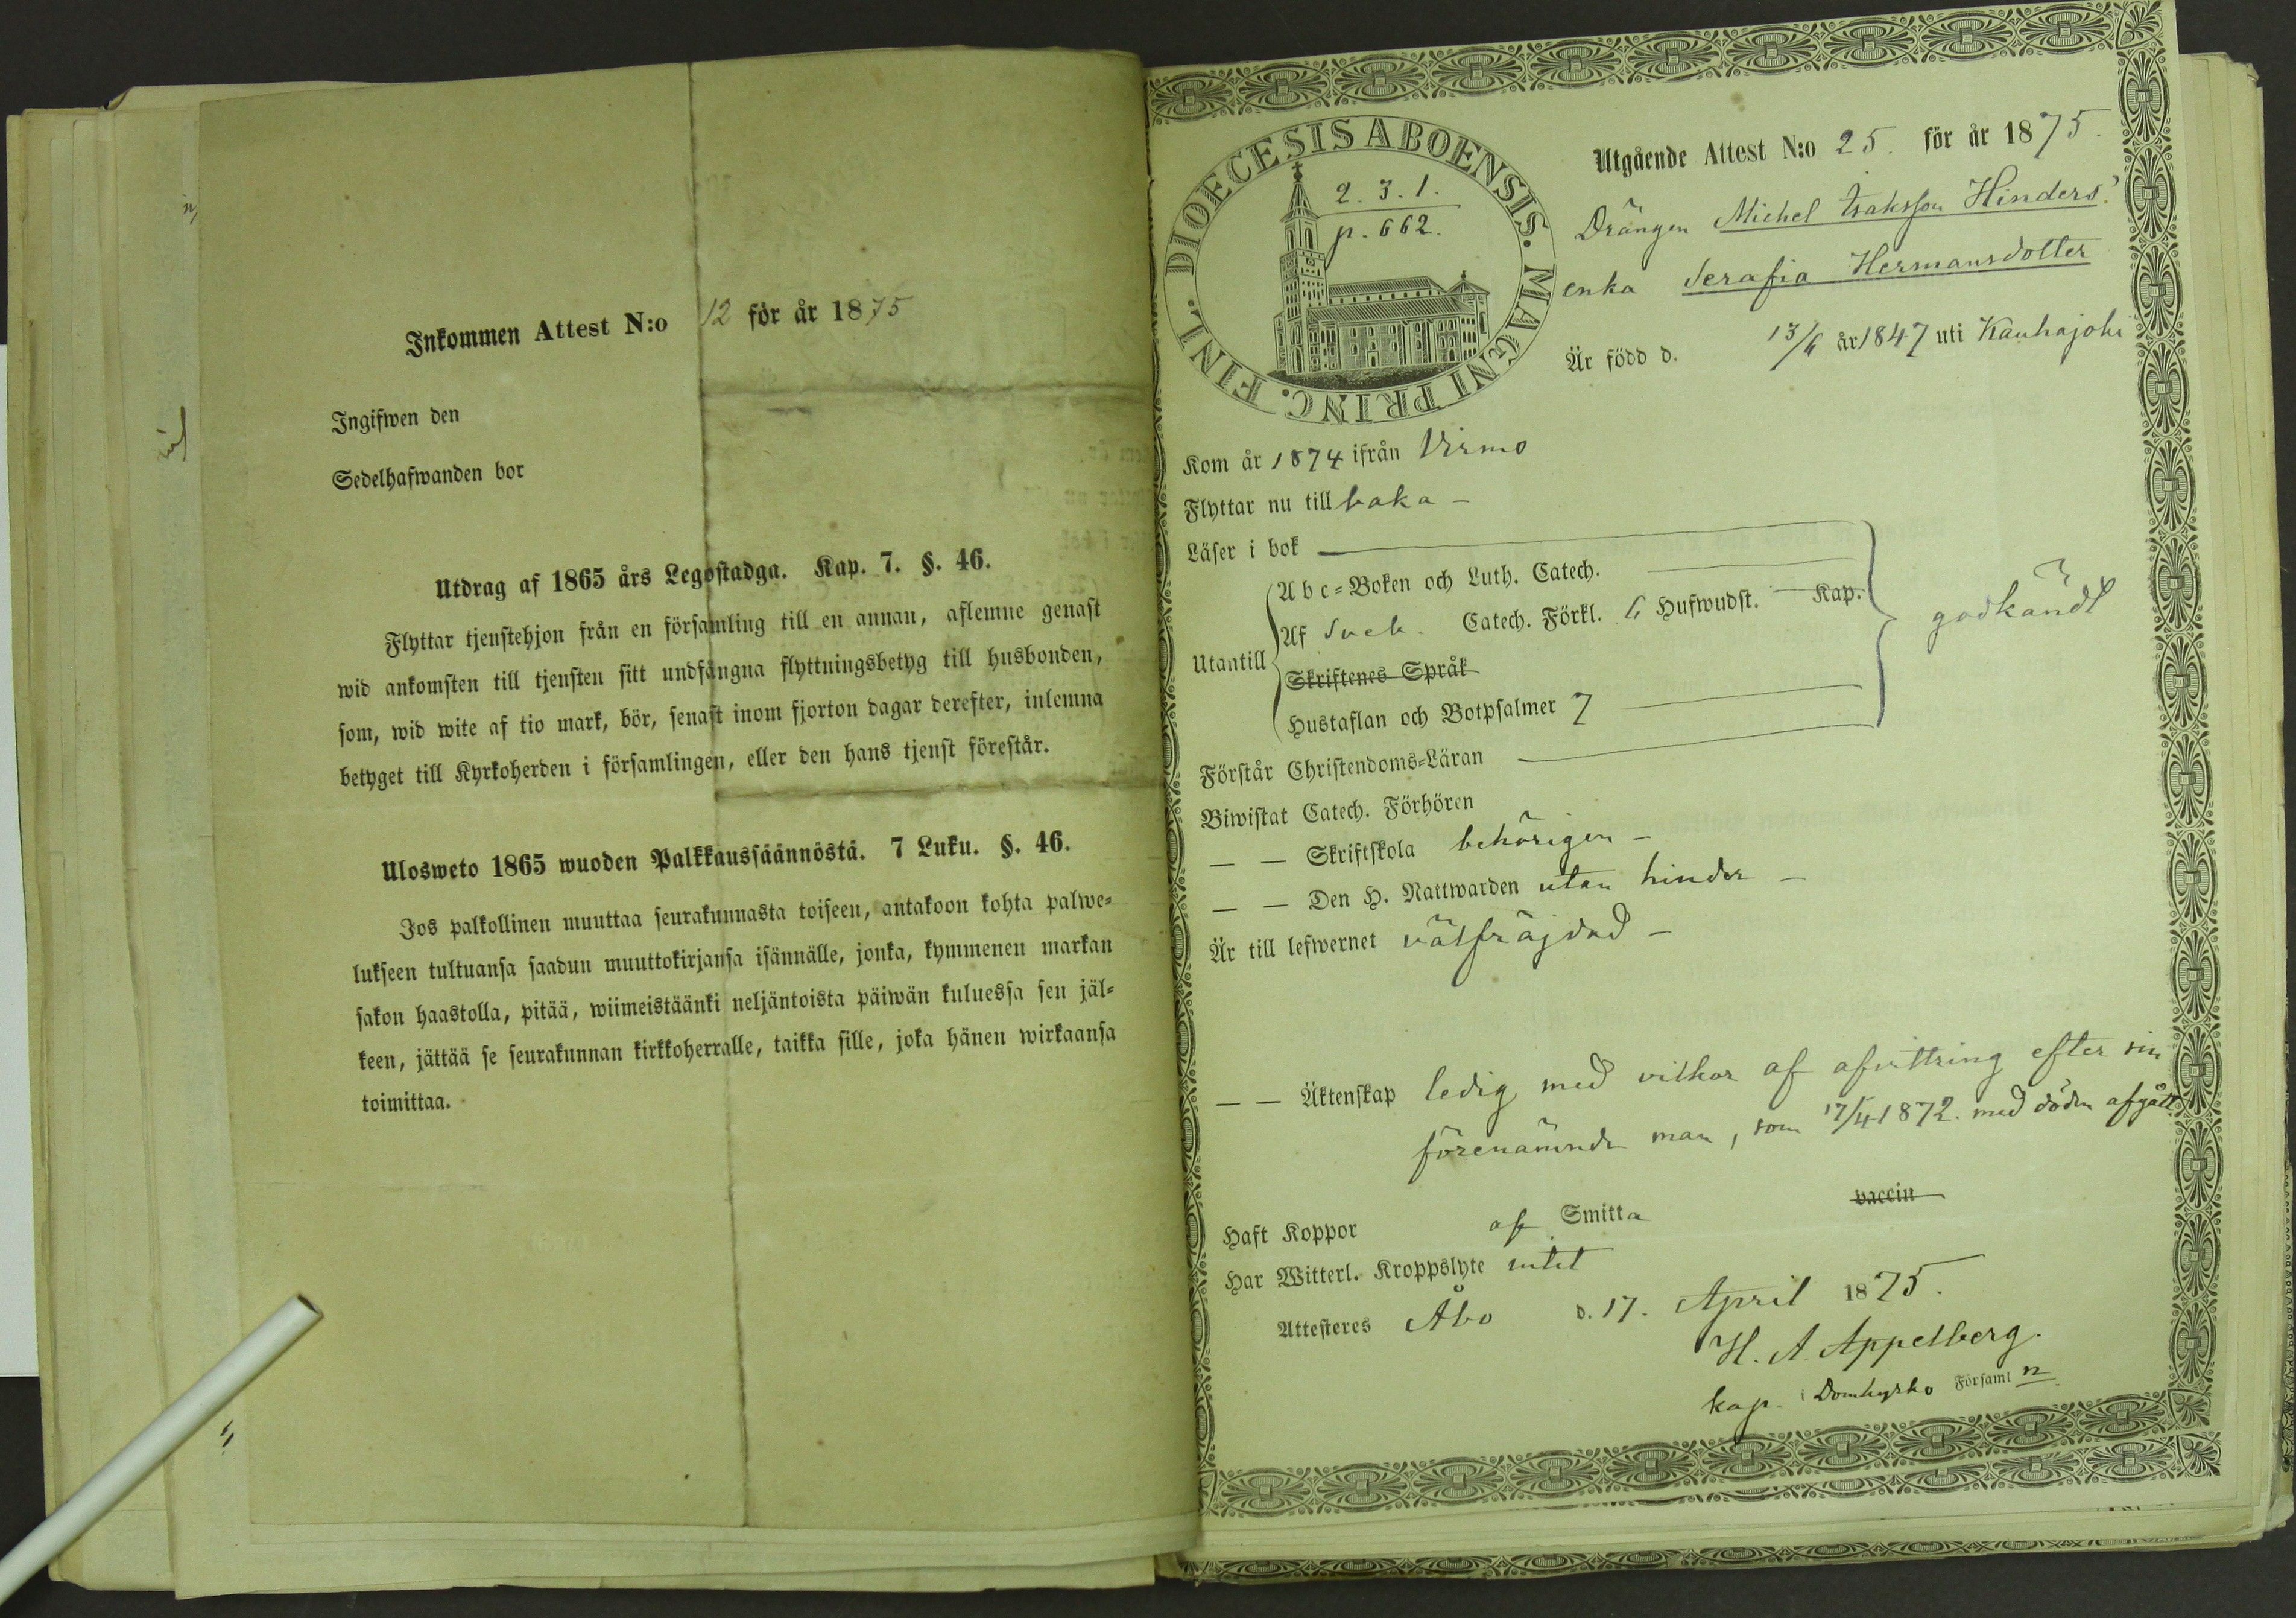 Inkommen Attest N:o 12 för år 1875
Ingifwen den
Sedelhafwanden bor
Utdrag af 1865 års Legostadga. Kap. 7. §. 46.
Flyttar tjenstehjon från en församling till en annan, aflemne genast
wid ankomsten till tjensten sitt undfångna flyttningsbetyg till husbonden,
som, wid wite af tio mark, bör, senast inom fjorton dagar derefter, inlemna
betyget till Kyrkoherden i församlingen, eller den hans tjenst förestår.
Ulosweto 1865 wuoden Palkkaussäännöstä. 7 Luku. §. 46.
Jos palkollinen muuttaa seurakunnasta toiseen, antakoon kohta palwe-
lukseen tultuansa saadun muuttokirjansa isännälle, jonka, kymmenen markan
sakon haastolla, pitää, wiimeistäänki neljäntoista päiwän kuluessa sen jäl-
keen, jättää se seurakunnan kirkkoherralle, taikka sille, joka hänen wirkaansa
toimittaa.
DIOECESIS ABOENSIS. MAGNI PRINC. FINL.
2. 3. 1.
p. 662.
Utgående Attest N:o 25. för år 1875.
Drängen Michel Isaksson Hinders
enka Serafia Hermansdotter
Är född d. 13/6 år 1847 uti Kauhajoki
Kom år 1874 ifrån Virmo
Flyttar nu till baka —
Läser i bok —
Utantill
Abc-Boken och Luth. Catech. —
Af Sveb. Catech. Förkl. 6 Hufwudst. — Kap.
Skriftenes Språk
Hustaflan och Botpsalmer 7 —
godkändt
Förstår Christendoms-Läran —
Biwistat Catech. Förhören
— — Skriftskola behörigen —
— — Den H. Nattwarden utan hinder —
Är till lefwernet välfräjdad —
— — Äktenskap ledig med vilkor af afvittring efter sin
förenämnde man, som 17/4 1872 med döden afgått.
Haft Koppor af Smitta vaccin
Har Witterl. Kroppslyte intet
Attesteres Åbo d. 17. April 1875.
H. A. Appelberg.
kap. i Domkyrko Församl n